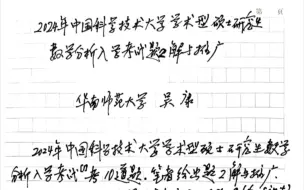 第 页
2024年中国科学技术大学学术型硕士研究生
数学分析入学考试题之解与推广
华南师范大学 吴康
2024年中国科学技术大学学术型硕士研究生数学
分析入学考试[1]考10道题,笔者给出题之解与推广.